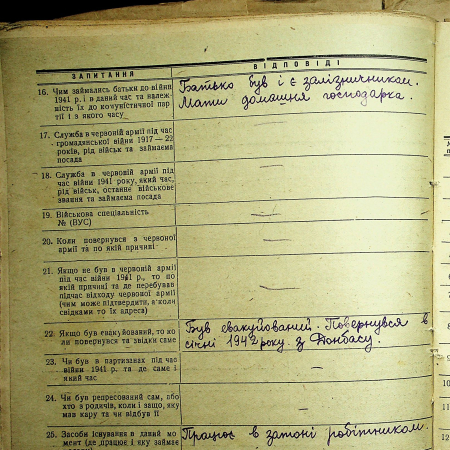 ЗАПИТАННЯ
ВІДПОВІДІ
16. Чим займались батьки до війни
1941 р. і в даний час та належ-
ність їх до комуністичної пар
тії і з якого часу
Батько був і є залізничником.
Мати домашня господарка.
17. Служба в червоній армії під час
громадянської війни 1917—22
років, рід військ та займаєма
посада
—
18. Служба в червоній армії під
час війни 1941 року, який час,
рід військ, останнє військове
звання та займаєма посада
—
19. Військова спеціальність
№ (ВУС)
—
20. Коли повернувся з червоної
армії та по якій причині
—
21. Якщо не був в червоній армії
під час війни 1941 р., то по
якій причині та де перебував
підчас відходу червоної армії
(чим може підтвердити, а коли
свідками то їх адреса)
—
22. Якщо був евакуйований, то ко
ли повернувся та звідки саме
Був евакуйований. Повернувся в
січні 1942 року з Донбасу.
23. Чи був в партизанах під час
війни 1941 р. та де саме і
який час
—
24. Чи був репресований сам, або
хто з родичів, коли і защо, яку
мав кару та чи відбув її
—
25. Засоби існування в даний мо
мент (де працює і яку займає
Працює в затоні робітником.